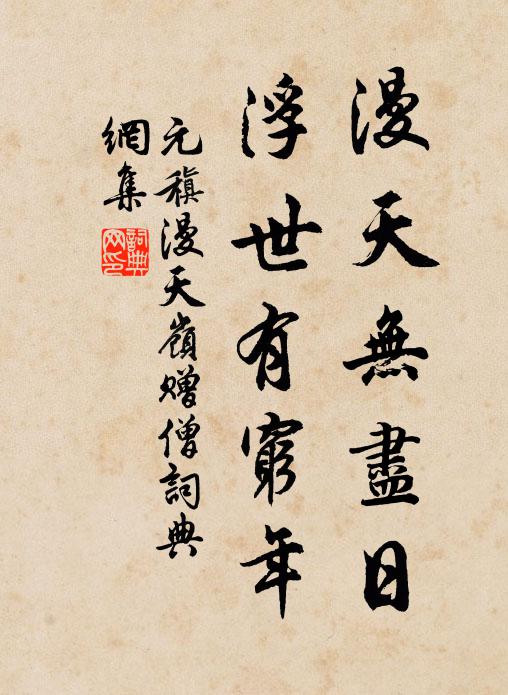 漫天無盡日
浮世有窮年
元稹漫天嶺赠僧詞典
網集
詞典
网印